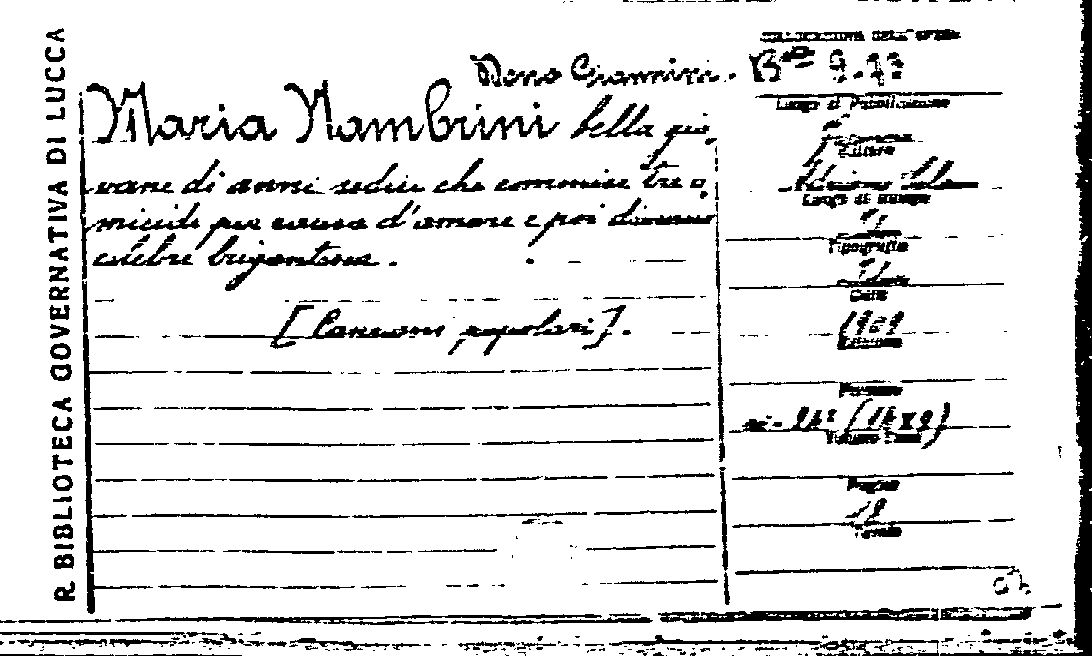 R. BIBLIOTECA GOVERNATIVA DI LUCCA
Dono Giannini.
Maria Nambrini bella gio-
vane di anni sedici che commise tre o-
micidi per causa d'amore e poi divenne
celebre brigantessa.
[Canzoni popolari].
COLLOCAZIONE DELL'OPERA
B.ta 9.43
Luogo di Pubblicazione
Firenze
Editore
Adriano Salani
Luogo di stampa
Tipografia
Data
1909
Edizione
Formato
in-24° (14x9)
Volume
Pagine
Tavole